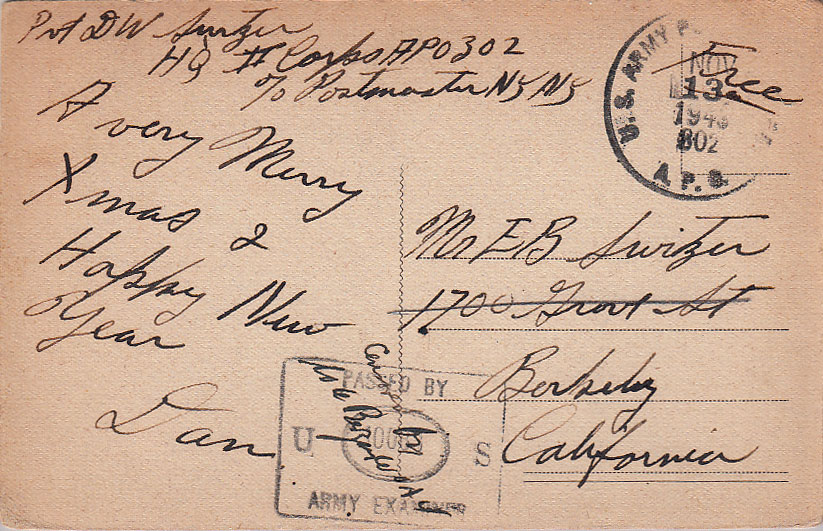 Pvt DW Switzer
HQ II Corps APO 302
c/o Postmaster NY NY
Free
U.S. ARMY P
NOV
13
1943
302
A.P.S.
A very Merry
Xmas &
Happy New
Year
Dan
Mr EB Switzer
1700 Grove St
Berkeley
California
PASSED BY
U S
ARMY EXAMINER
Censored by